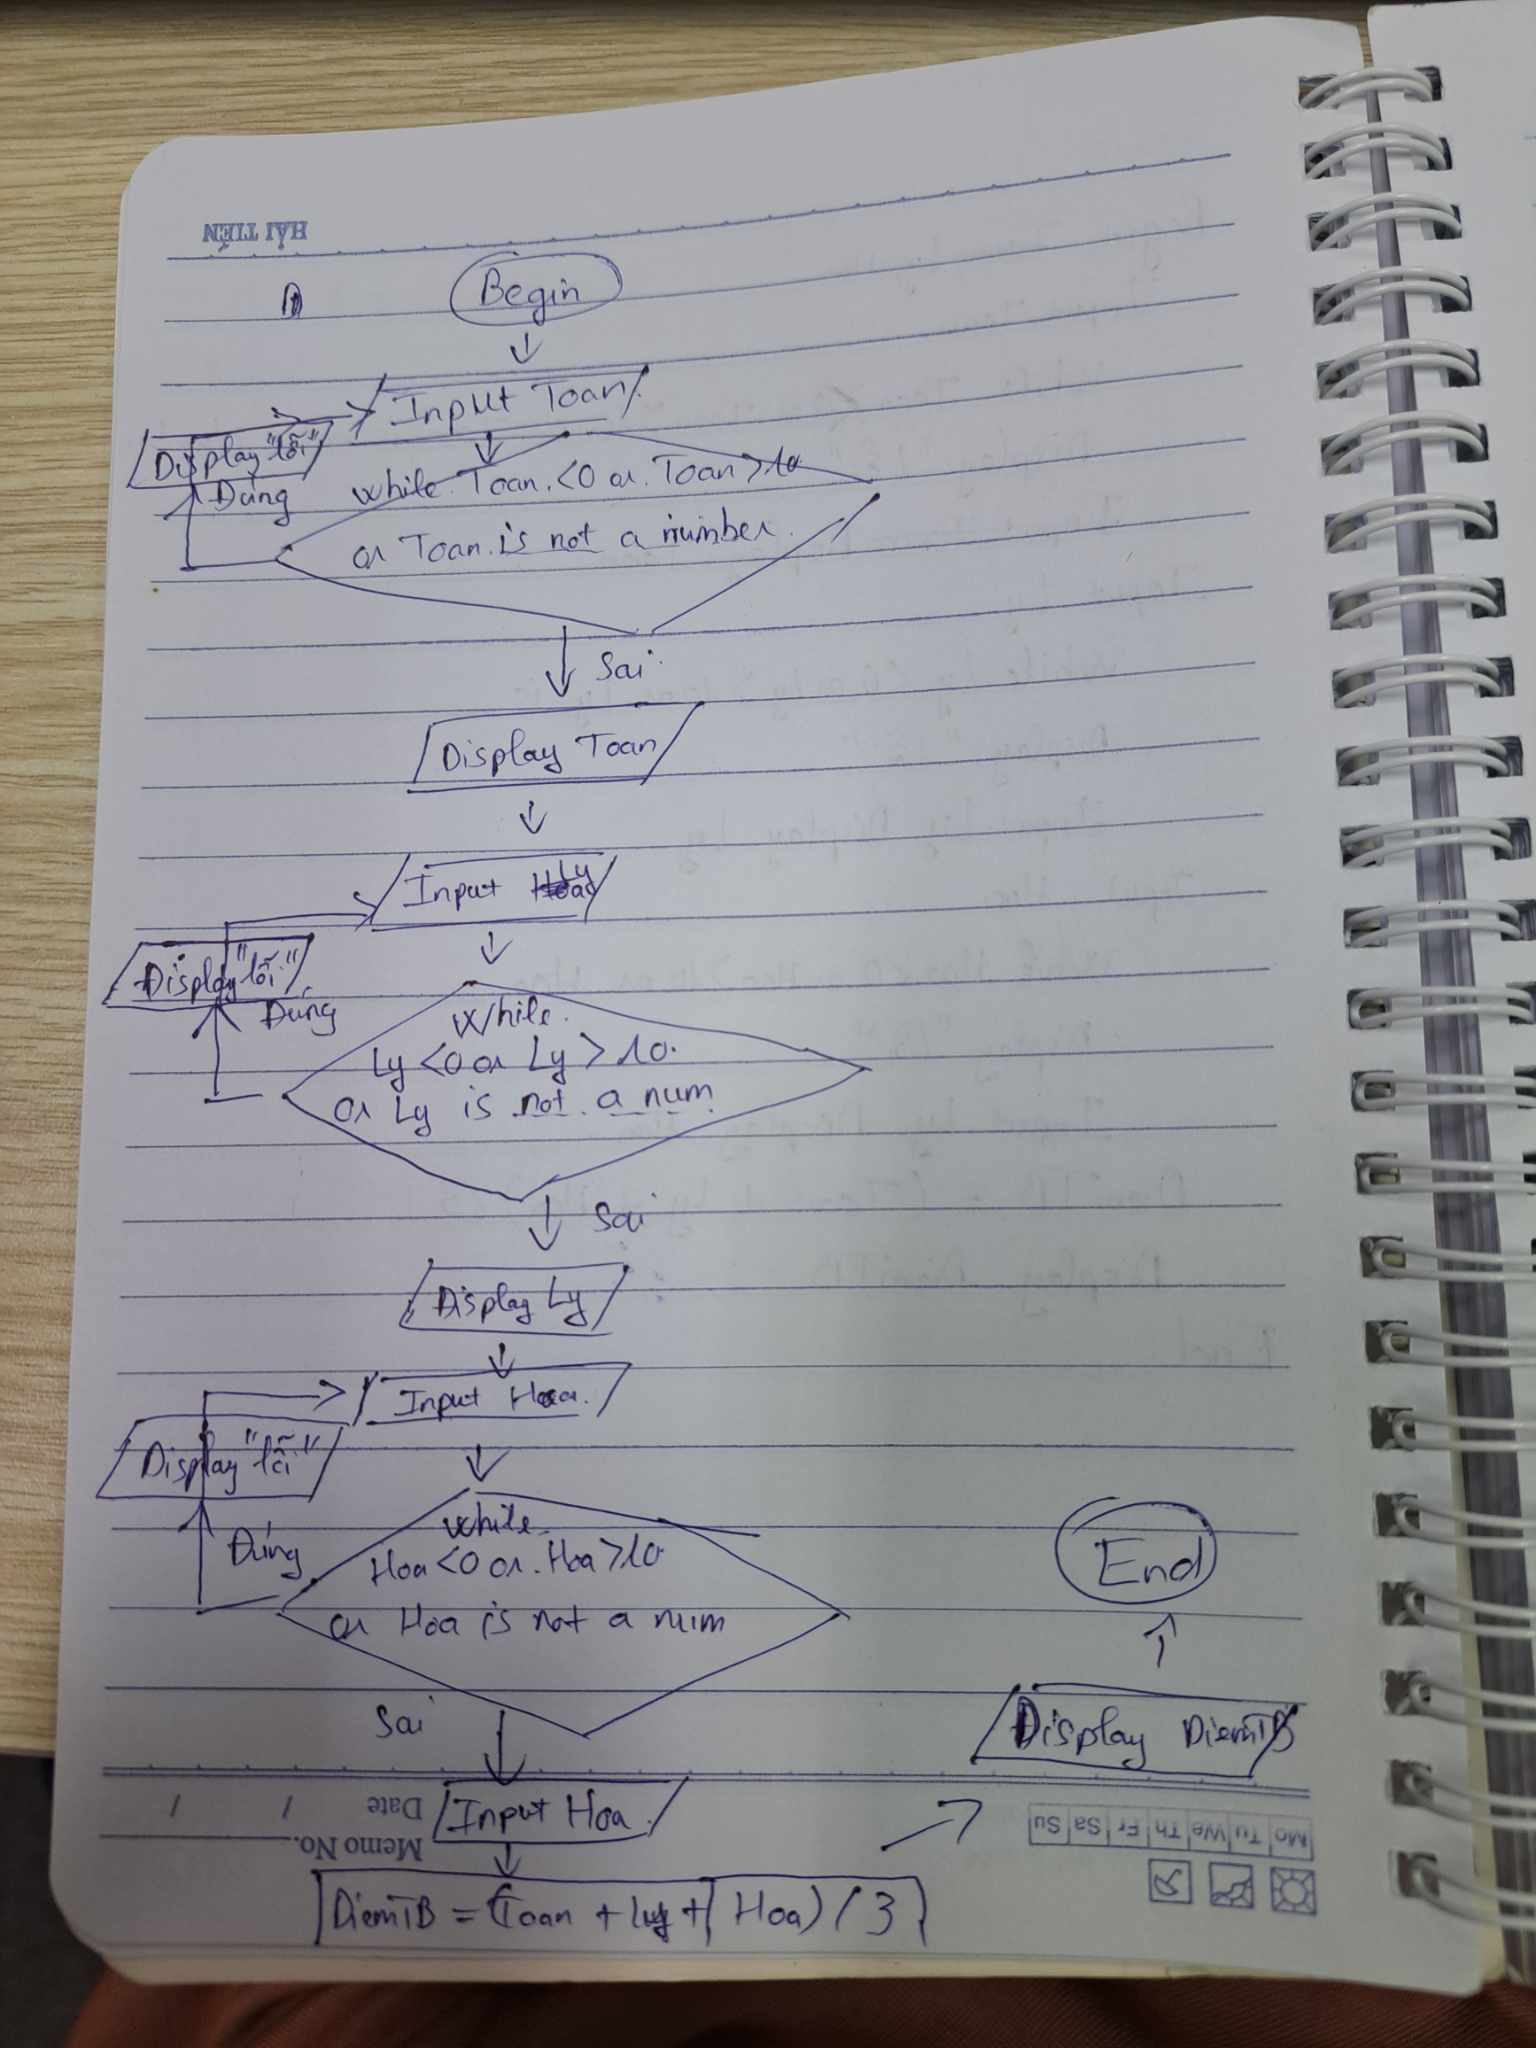 HẢI TIẾN
Begin
Input Toan
Display "lỗi"
Đúng
while Toan <0 or Toan >10
or Toan is not a number
Sai
Display Toan
Input Ly
Display "lỗi"
Đúng
While
Ly <0 or Ly >10
or Ly is not a num
Sai
Display Ly
Input Hoa
Display "lỗi"
Đúng
while
Hoa <0 or Hoa >10
or Hoa is not a num
End
Sai
Display DiemTB
Input Hoa
Date / /
Memo No.
Mo Tu We Th Fr Sa Su
DiemTB = (Toan + Ly + Hoa) / 3